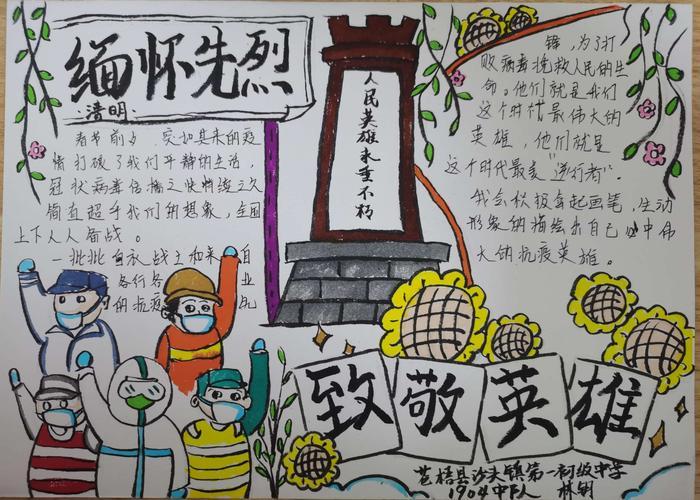 缅怀先烈
清明:
春节前夕,突如其来的疫
情打破了我们平静的生活,
冠状病毒传播之快持续之久
简直超乎我们的想象,全国
上下人人备战。
一批批白衣战士和来自
各行各业
的抗疫
人民英雄永垂不朽
锋,为了打
败病毒拯救人民的生
命。他们就是我们
这个时代最伟大的
英雄,他们就是
这个时代最美"逆行者"。
我会积极拿起画笔,生动
形象的描绘出自己心中伟
大的抗疫英雄。
致敬英雄
苍梧县沙头镇第一初级中学
1904中队